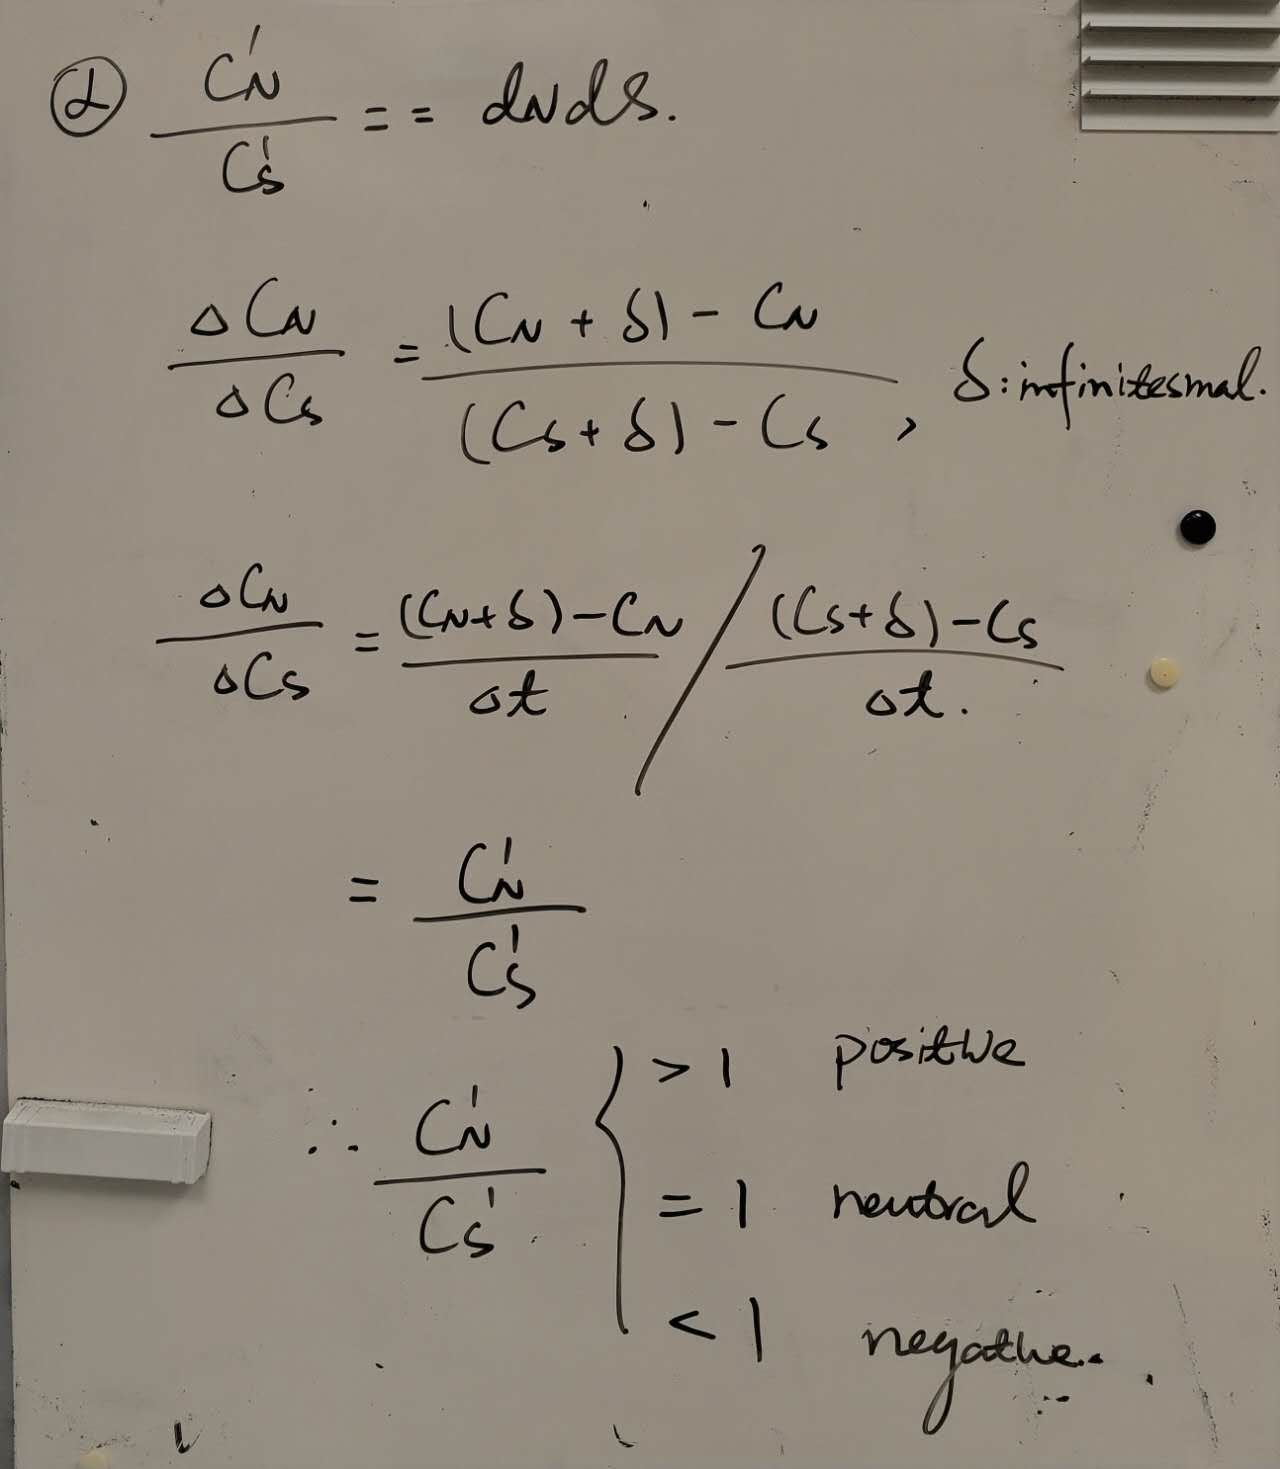 ② C'N / C's == dNdS.
ΔCN / ΔCs = (CN + δ) - CN / (Cs + δ) - Cs , δ: infinitesmal.
ΔCN / ΔCs = (CN+δ)-CN / Δt / (Cs+δ)-Cs / Δt.
= C'N / C's
∴ C'N / Cs' { > 1 positive
= 1 neutral
< 1 negative.